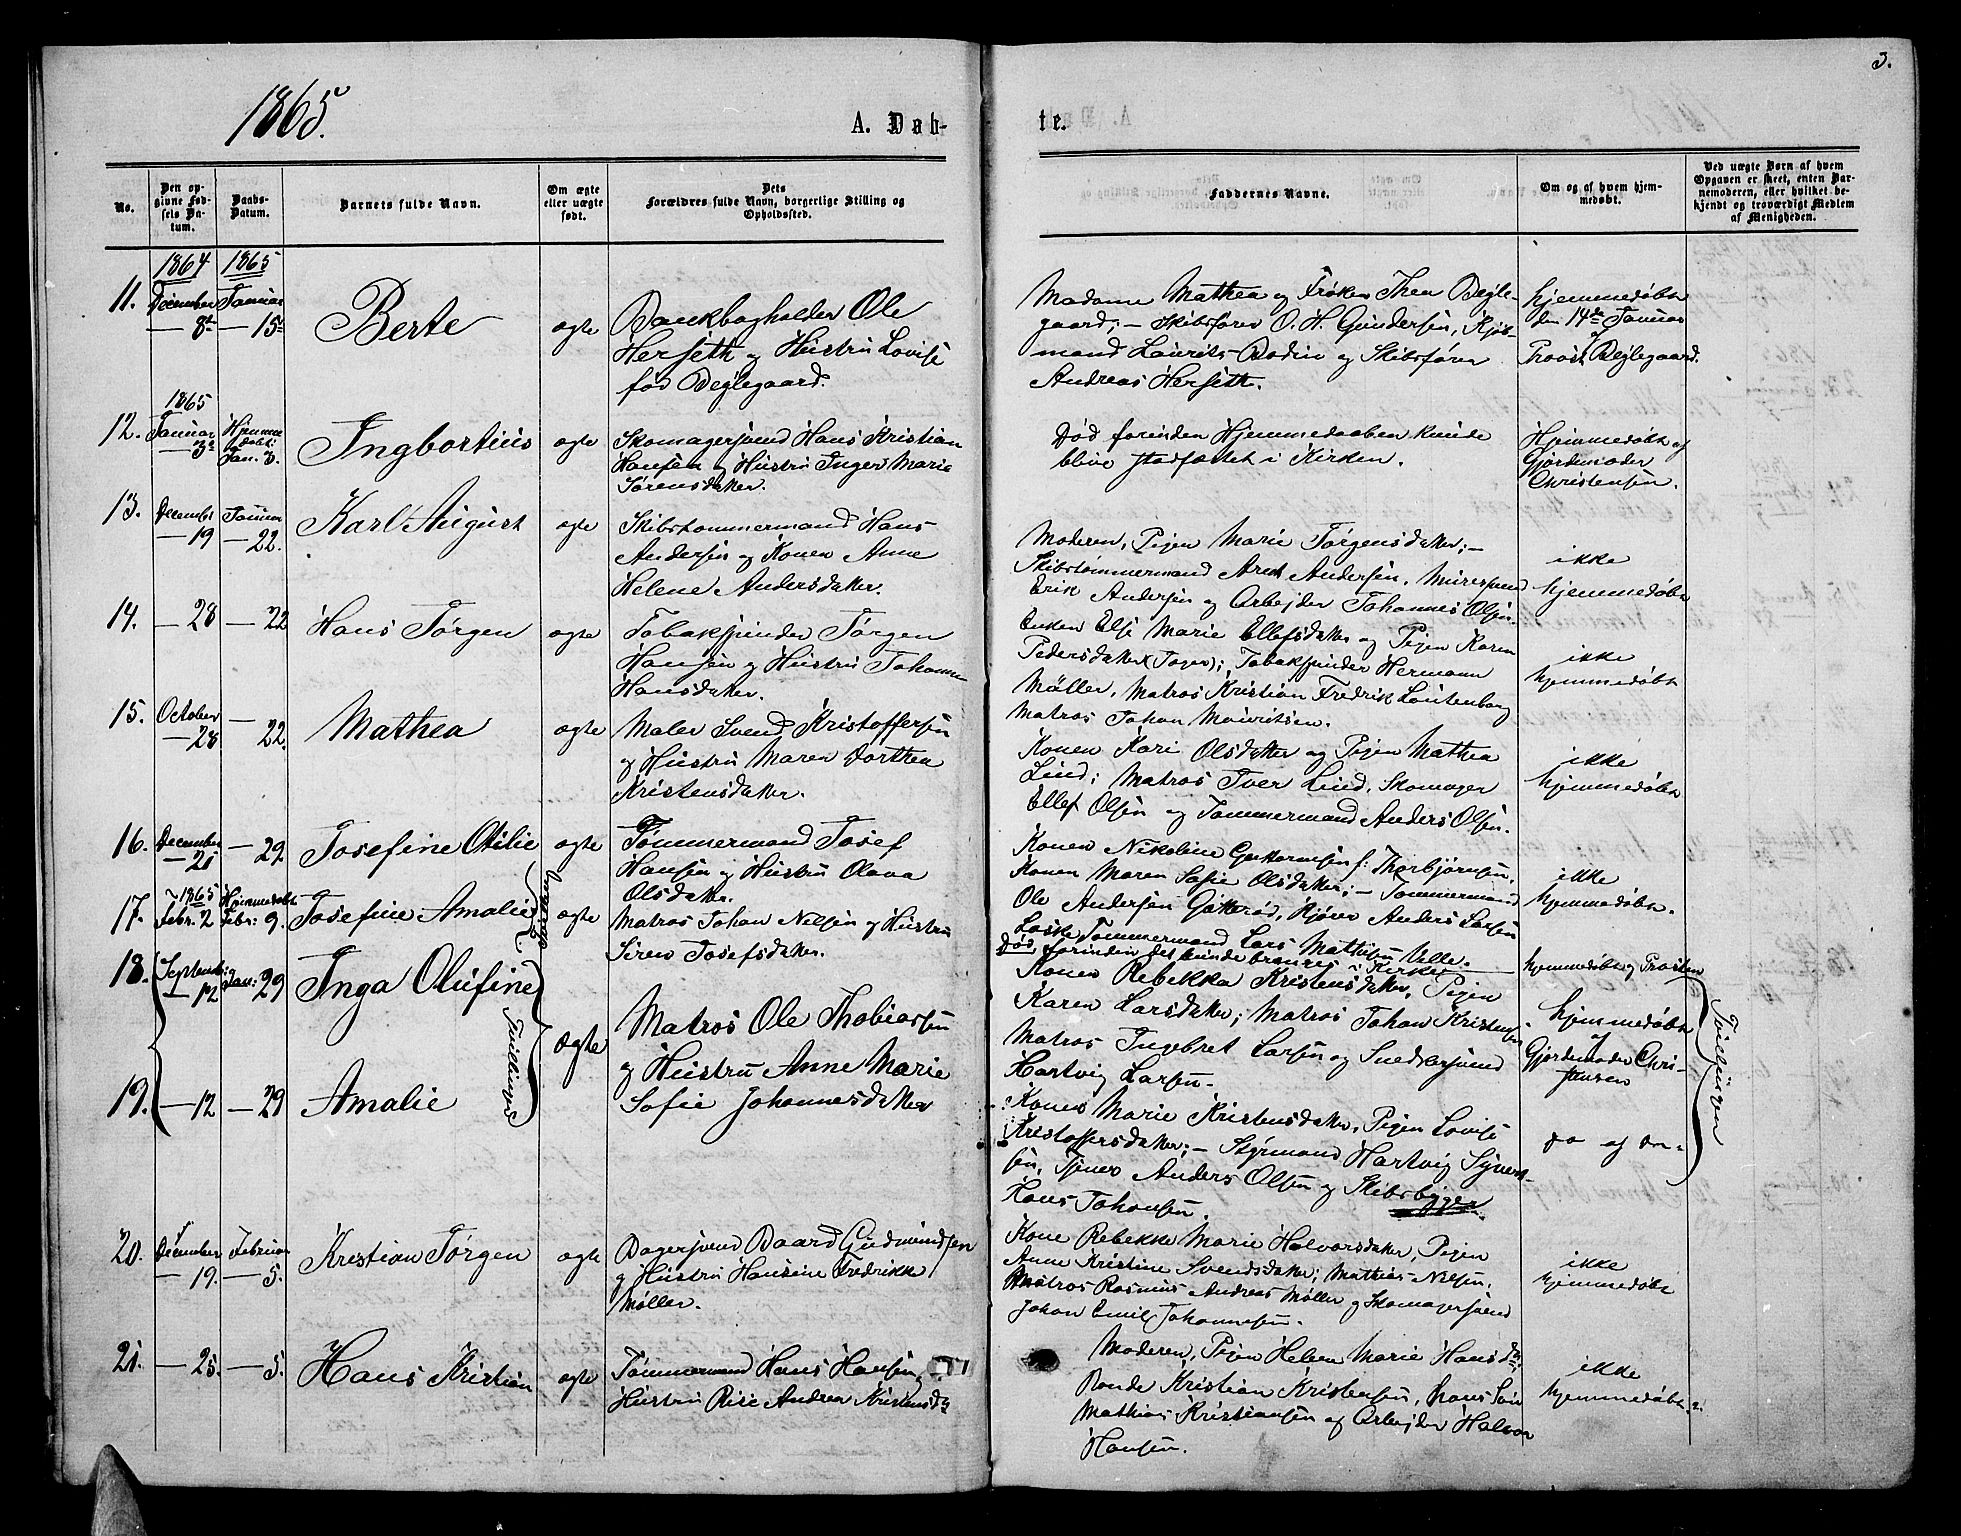 3.
1865.
A. Døb-
te.
No.
Den op-
givne Fød-
sels Da-
tum.
Daabs-
Datum.
Barnets fulde Navn.
Om ægte
eller uægte
født.
Dets
Forældres fulde Navn, borgerlige Stilling og
Opholdssted.
Faddernes Navne.
Om og af hvem hjem-
medøbt.
Ved uægte Børn af hvem
Opgaven er skeet, enten Bar-
nemoderen, eller hvilket be-
kjendt og troværdigt Medlem
af Menigheden.
1864 1865
11. December Januar
— 8de — 15de
Berte
ægte
Bankbogholder Ole
Herseth og Hustru Lovise
fød Bejlegaard.
Madame Mathea og Frøken Thea Bejle-
gaard; — Skibsfører O. H. Gundersen, Kjøb-
mand Laurits Bodin og Skibsfører
Andreas Herseth.
hjemmedøbt
den 14de Januar
Provst Bejlegaard.
1865
12. Januar
3de
Hjemme
døbt:
Jan. 3.
Ingbortius
ægte
Skomagersvend Hans Kristian
Hansen og Hustru Inger Marie
Sørensdatter.
Død forinden Hjemmedaaben kunde
blive stadfæstet i Kirken.
Hjemmedøbt af
Gjordemoder
Christensen.
13. December Januar
— 19 — 22.
Karl August
ægte
Skibstømmermand Hans
Andersen og Konen Anne
Helene Andersdatter.
Moderen, Pigen Marie Jørgensdatter; —
Skibstømmermand Arent Andersen, Murersvend
Erik Andersen og Arbejder Johannes Olsen.
ikke
hjemmedøbt
14. — 28 — 22
Hans Jørgen
ægte
Tobakspinder Jørgen
Hansen og Hustru Johanne
Hansdatter.
Enken Else Marie Ellefsdatter og Pigen Karen
Pedersdatter; Tobakspinder Hermann
Møller, Matros Kristian Fredrik Loutenborg
Matros Johan Mouritsen.
ikke
hjemmedøbt
15. October —
— 28 22.
Mathea
ægte
Maler Svend Kristoffersen
og Hustru Maren Dorthea
Kristensdatter.
Konen Kari Olsdatter og Pigen Mathea
Lind; Matros Iver Lind, Skomager
Ellef Olsen og Tømmermand Anders Olsen.
ikke
hjemmedøbt
16. December
— 21 — 29
Josefine Otilie
ægte
Tømmermand Josef
Hansen og Hustru Olava
Olsdatter.
Konen Nikoline Guttormsen f. Thorbjørnsen,
Konen Maren Sofie Olsdatter; — Tømmermand
Ole Andersen Gåkerød, Kjører Anders Larsen
Løske, Tømmermand Lars Mathisen Ulle.
ikke
hjemmedøbt.
1865 Hjemmedøbt
17. Febr. 2 Febr: 9.
Josefine Amalie
ægte
Matros Johan Nilsen og Hustru
Siren Josefsdatter.
Død, forinden det kunde bringes i Kirke
hjemmedøbt af Provsten
18. September
— 12 Jan: 29
Inga Olufine
Tvillinger
ægte
Matros Ole Thobiassen
og Hustru Anne Marie
Sofie Johannesdatter
Konen Rebekka Kristensdatter, Pigen
Karen Larsdatter; Matros Johan Kristensen
Matros Ingebret Larsen og Snedkersvend
Hartvig Larsen.
hjemmedøbt
af
Gjordemoder Chri-
stensen
Tvillinger
19. — 12 — 29
Amalie
Konen Marie Kristensdatter, Pigen Lovise
Kristoffersdatter; — Styrmand Hartvig Syvert-
sen, Tjener Anders Olsen og Skibsbygger
Hans Johansen.
do af do -
20. December Februar
— 19. — 5.
Kristian Jørgen
ægte
Bagersvend Baard Gudmundsen
og Hustru Hansine Fredrikke
Møller.
Kone Rebekke Marie Halvorsdatter, Pigen
Anne Kristine Svendsdatter; Mathias Nilsen,
Matros Rasmus Andreas Møller og Skomagersvend
Johan Emil Johannesen.
ikke
hjemmedøbt
21. — 25. — 5.
Hans Kristian
ægte
Tømmermand Hans Hansen
Hustru Risе Andrea Kristensdtr
Moderen, Pigen Helene Marie Hansdtr.
Bonde Kristian Kristensen, hans Søn
Mathias Kristiansen og Arbejder Halvor
Hansen.
ikke
hjemmedøbt